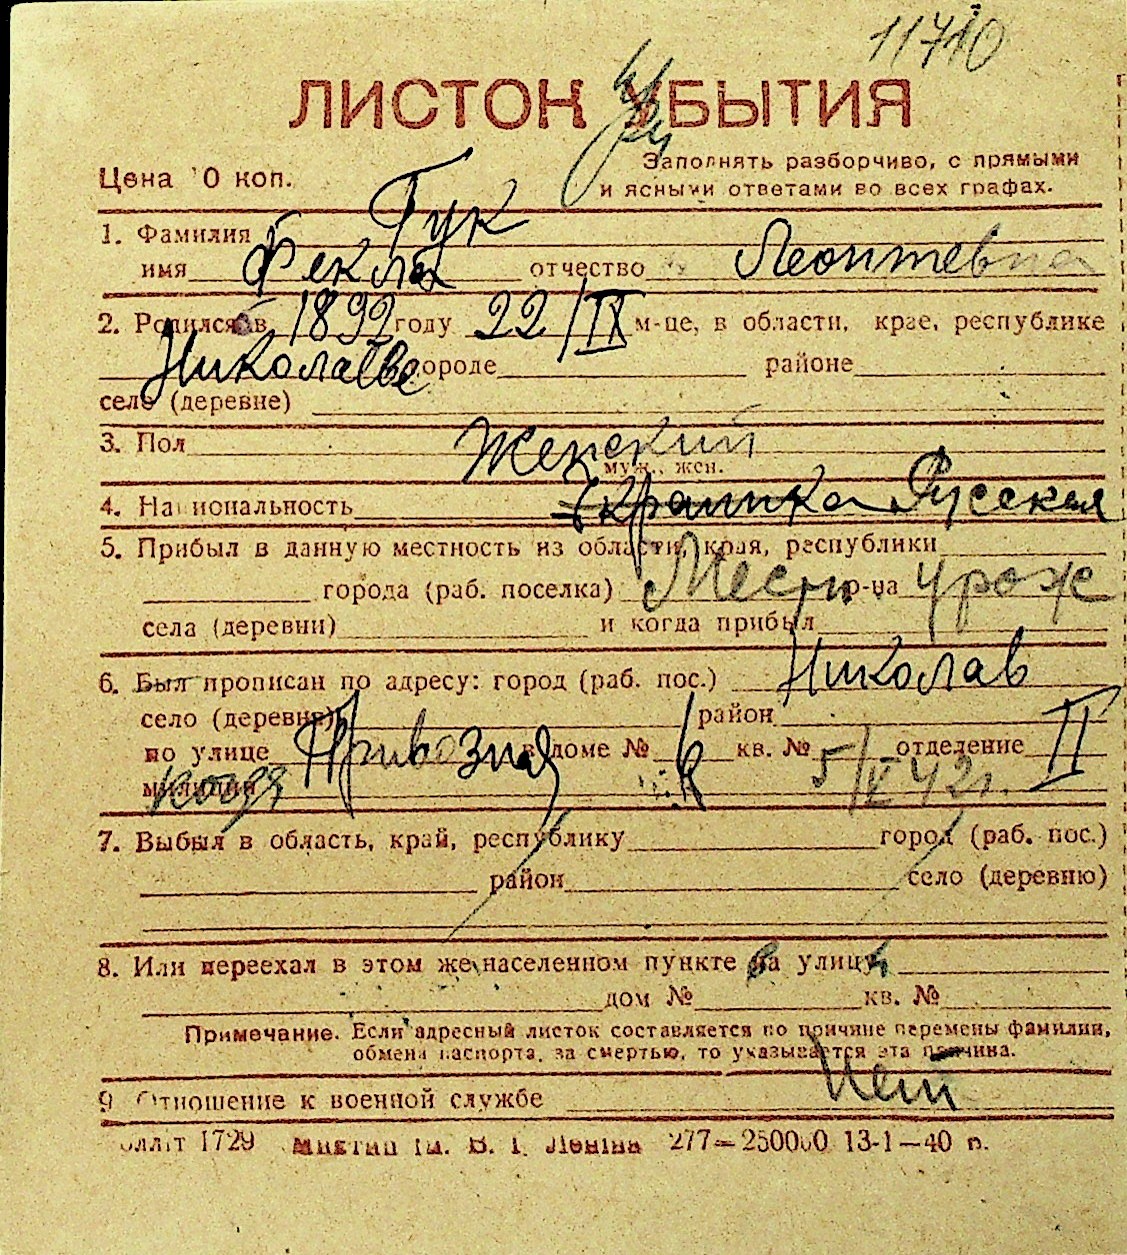 11710
ЛИСТОК УБЫТИЯ
Цена 10 коп.
Заполнять разборчиво, с прямыми
и ясными ответами во всех графах.
1. Фамилия Гук
имя Фекла отчество Леонтевна
2. Родился в 1892 году 22/IX м-це, в области, крае, республике
Николаеве городе районе
село (деревне)
3. Пол Женский
муж., жен.
4. Национальность Украинка Русская
5. Прибыл в данную местность из области, края, республики
города (раб. поселка) Местн р-на урож
села (деревни) и когда прибыл
6. Был прописан по адресу: город (раб. пос.) Николаев
село (деревня) район
по улице Привозная в доме № кв. № отделение II
милиции когда 5/V 42г.
7. Выбыл в область, край, республику город (раб. пос.)
район село (деревню)
8. Или переехал в этом же населенном пункте на улицу
дом № кв. №
Примечание. Если адресный листок составляется по причине перемены фамилии,
обмена паспорта, за смертью, то указывается эта причина.
9 Отношение к военной службе Нет
1729 ім. В. І. Леніна 277—250000 13-1—40 р.